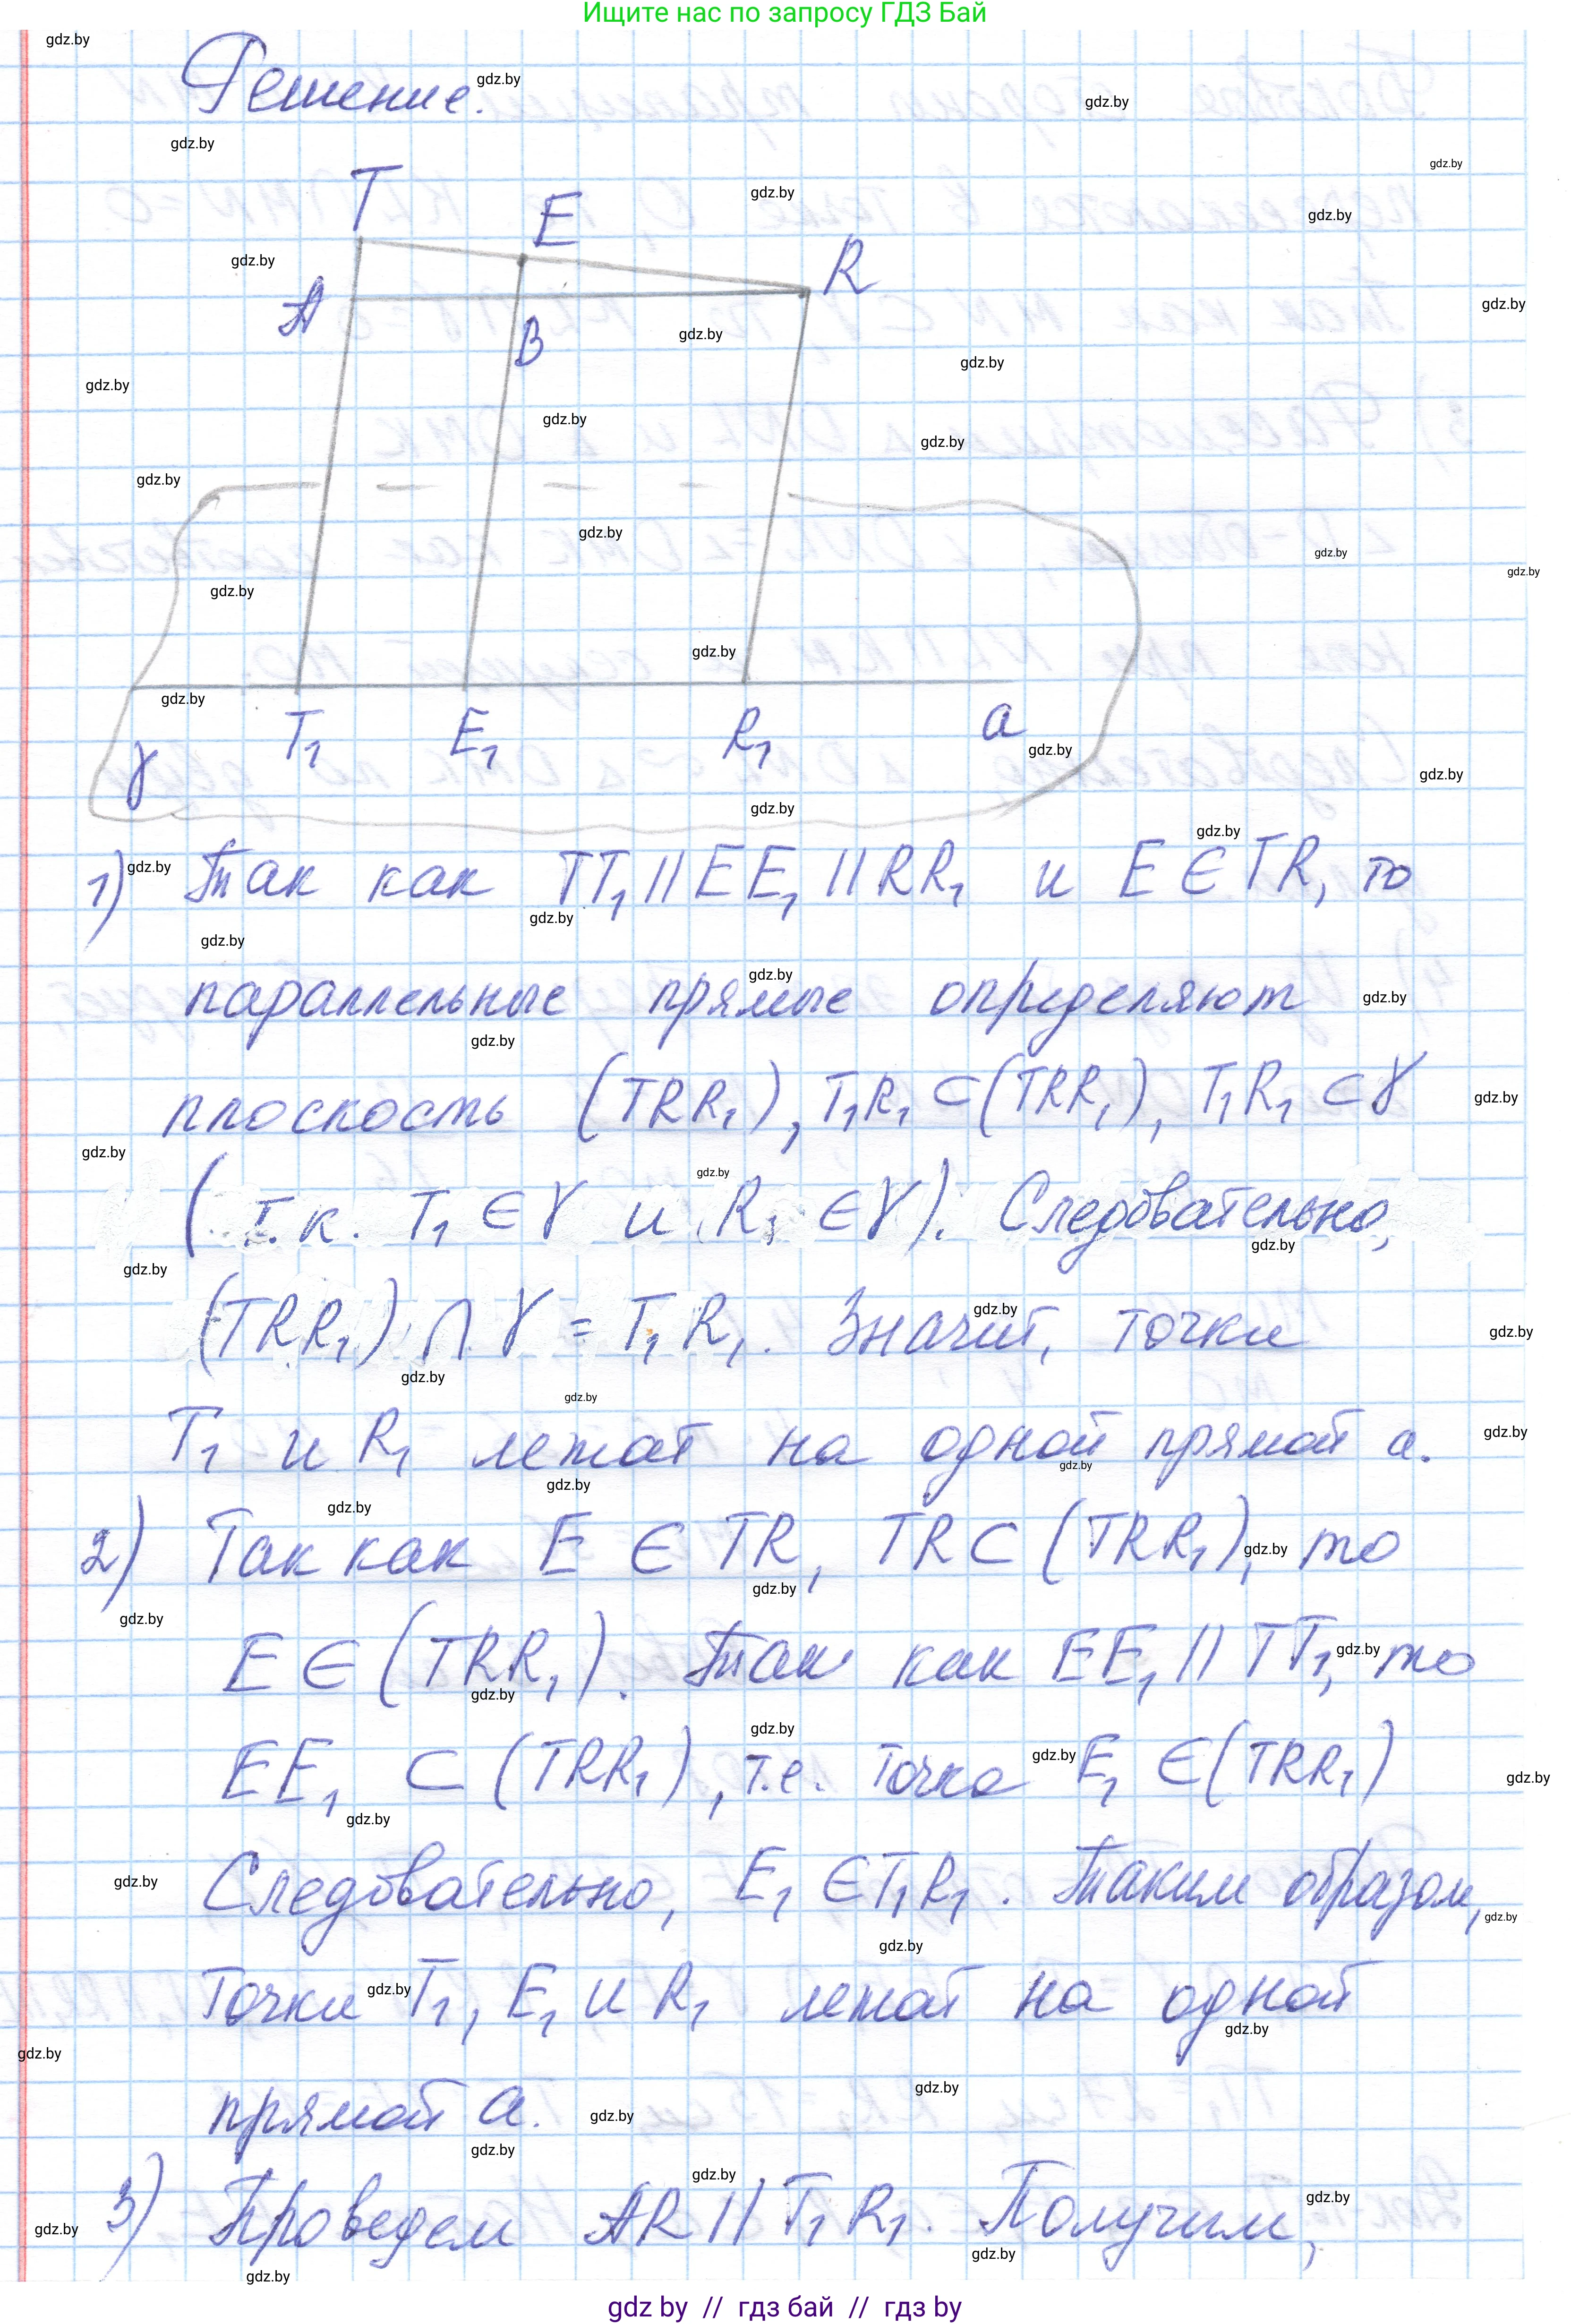 Ищите нас по запросу ГДЗ Бай
Решение.
T
E
R
A
B
T₁
E₁
R₁
a
γ
1) Так как TT₁ || EE₁ || RR₁ и E ∈ TR, то
параллельные прямые определяют
плоскость (TRR₁), T₁R₁ ⊂ (TRR₁), T₁R₁ ⊂ γ
(т.к. T₁ ∈ γ и R₁ ∈ γ). Следовательно,
(TRR₁) ∩ γ = T₁R₁. Значит, точки
T₁ и R₁ лежат на одной прямой a.
2) Так как E ∈ TR, TR ⊂ (TRR₁), то
E ∈ (TRR₁). Так как EE₁ || TT₁, то
EE₁ ⊂ (TRR₁), т.е. точка E₁ ∈ (TRR₁)
Следовательно, E₁ ∈ T₁R₁. Таким образом,
точки T₁, E₁ и R₁ лежат на одной
прямой a.
3) Проведем AR || T₁R₁. Получим,
gdz by // гдз бай // гдз by